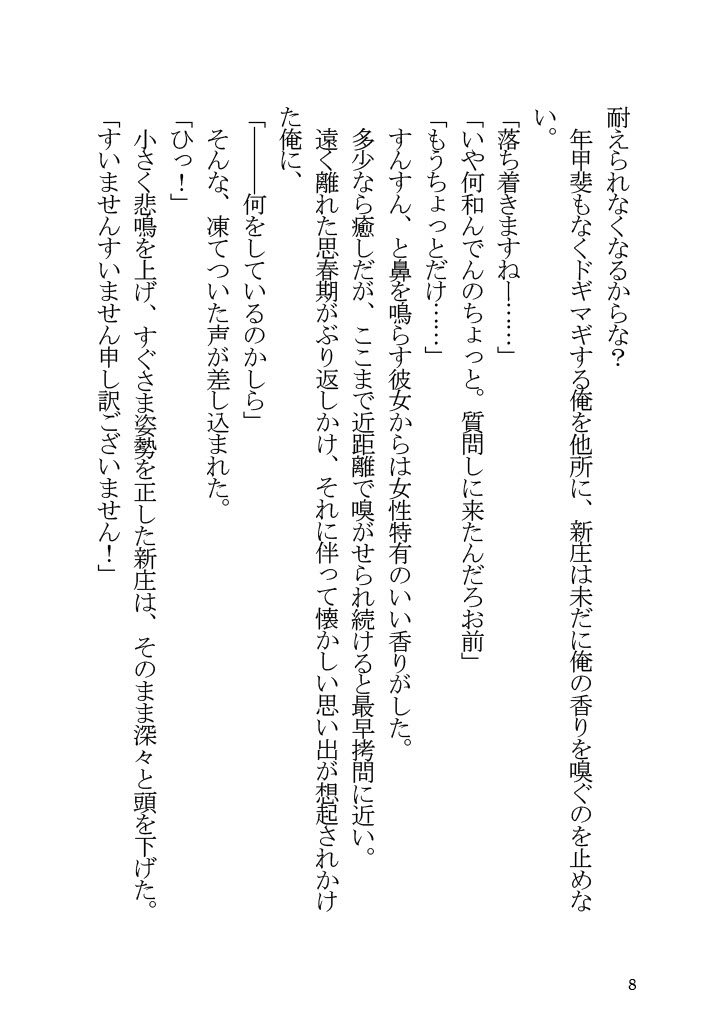 耐えられなくなるからな？
年甲斐もなくドギマギする俺を他所に、新庄は未だに俺の香りを嗅ぐのを止めな
い。
「落ち着きますねー……」
「いや何和んでんのちょっと。質問しに来たんだろお前」
「もうちょっとだけ……」
すんすん、と鼻を鳴らす彼女からは女性特有のいい香りがした。
多少なら癒しだが、ここまで近距離で嗅がせられ続けると最早拷問に近い。
遠く離れた思春期がぶり返しかけ、それに伴って懐かしい思い出が想起されかけ
た俺に、
「───何をしているのかしら」
そんな、凍てついた声が差し込まれた。
「ひっ！」
小さく悲鳴を上げ、すぐさま姿勢を正した新庄は、そのまま深々と頭を下げた。
「すいませんすいません申し訳ございません！」
8